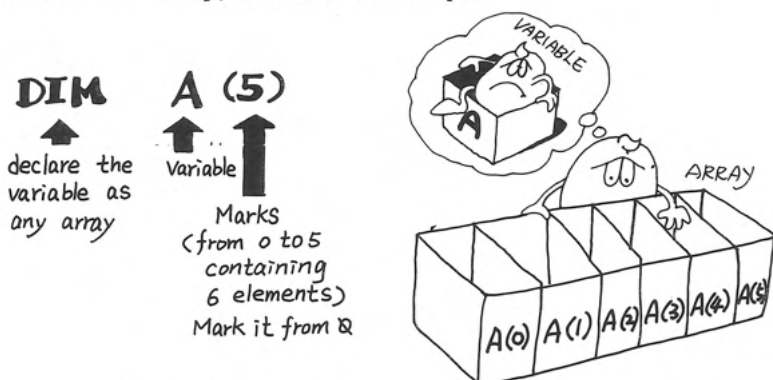 DIM A (5)
declare the
variable as
any array
Variable
Marks
(from 0 to 5
containing
6 elements)
Mark it from 0
VARIABLE
A
ARRAY
A(0) A(1) A(2) A(3) A(4) A(5)